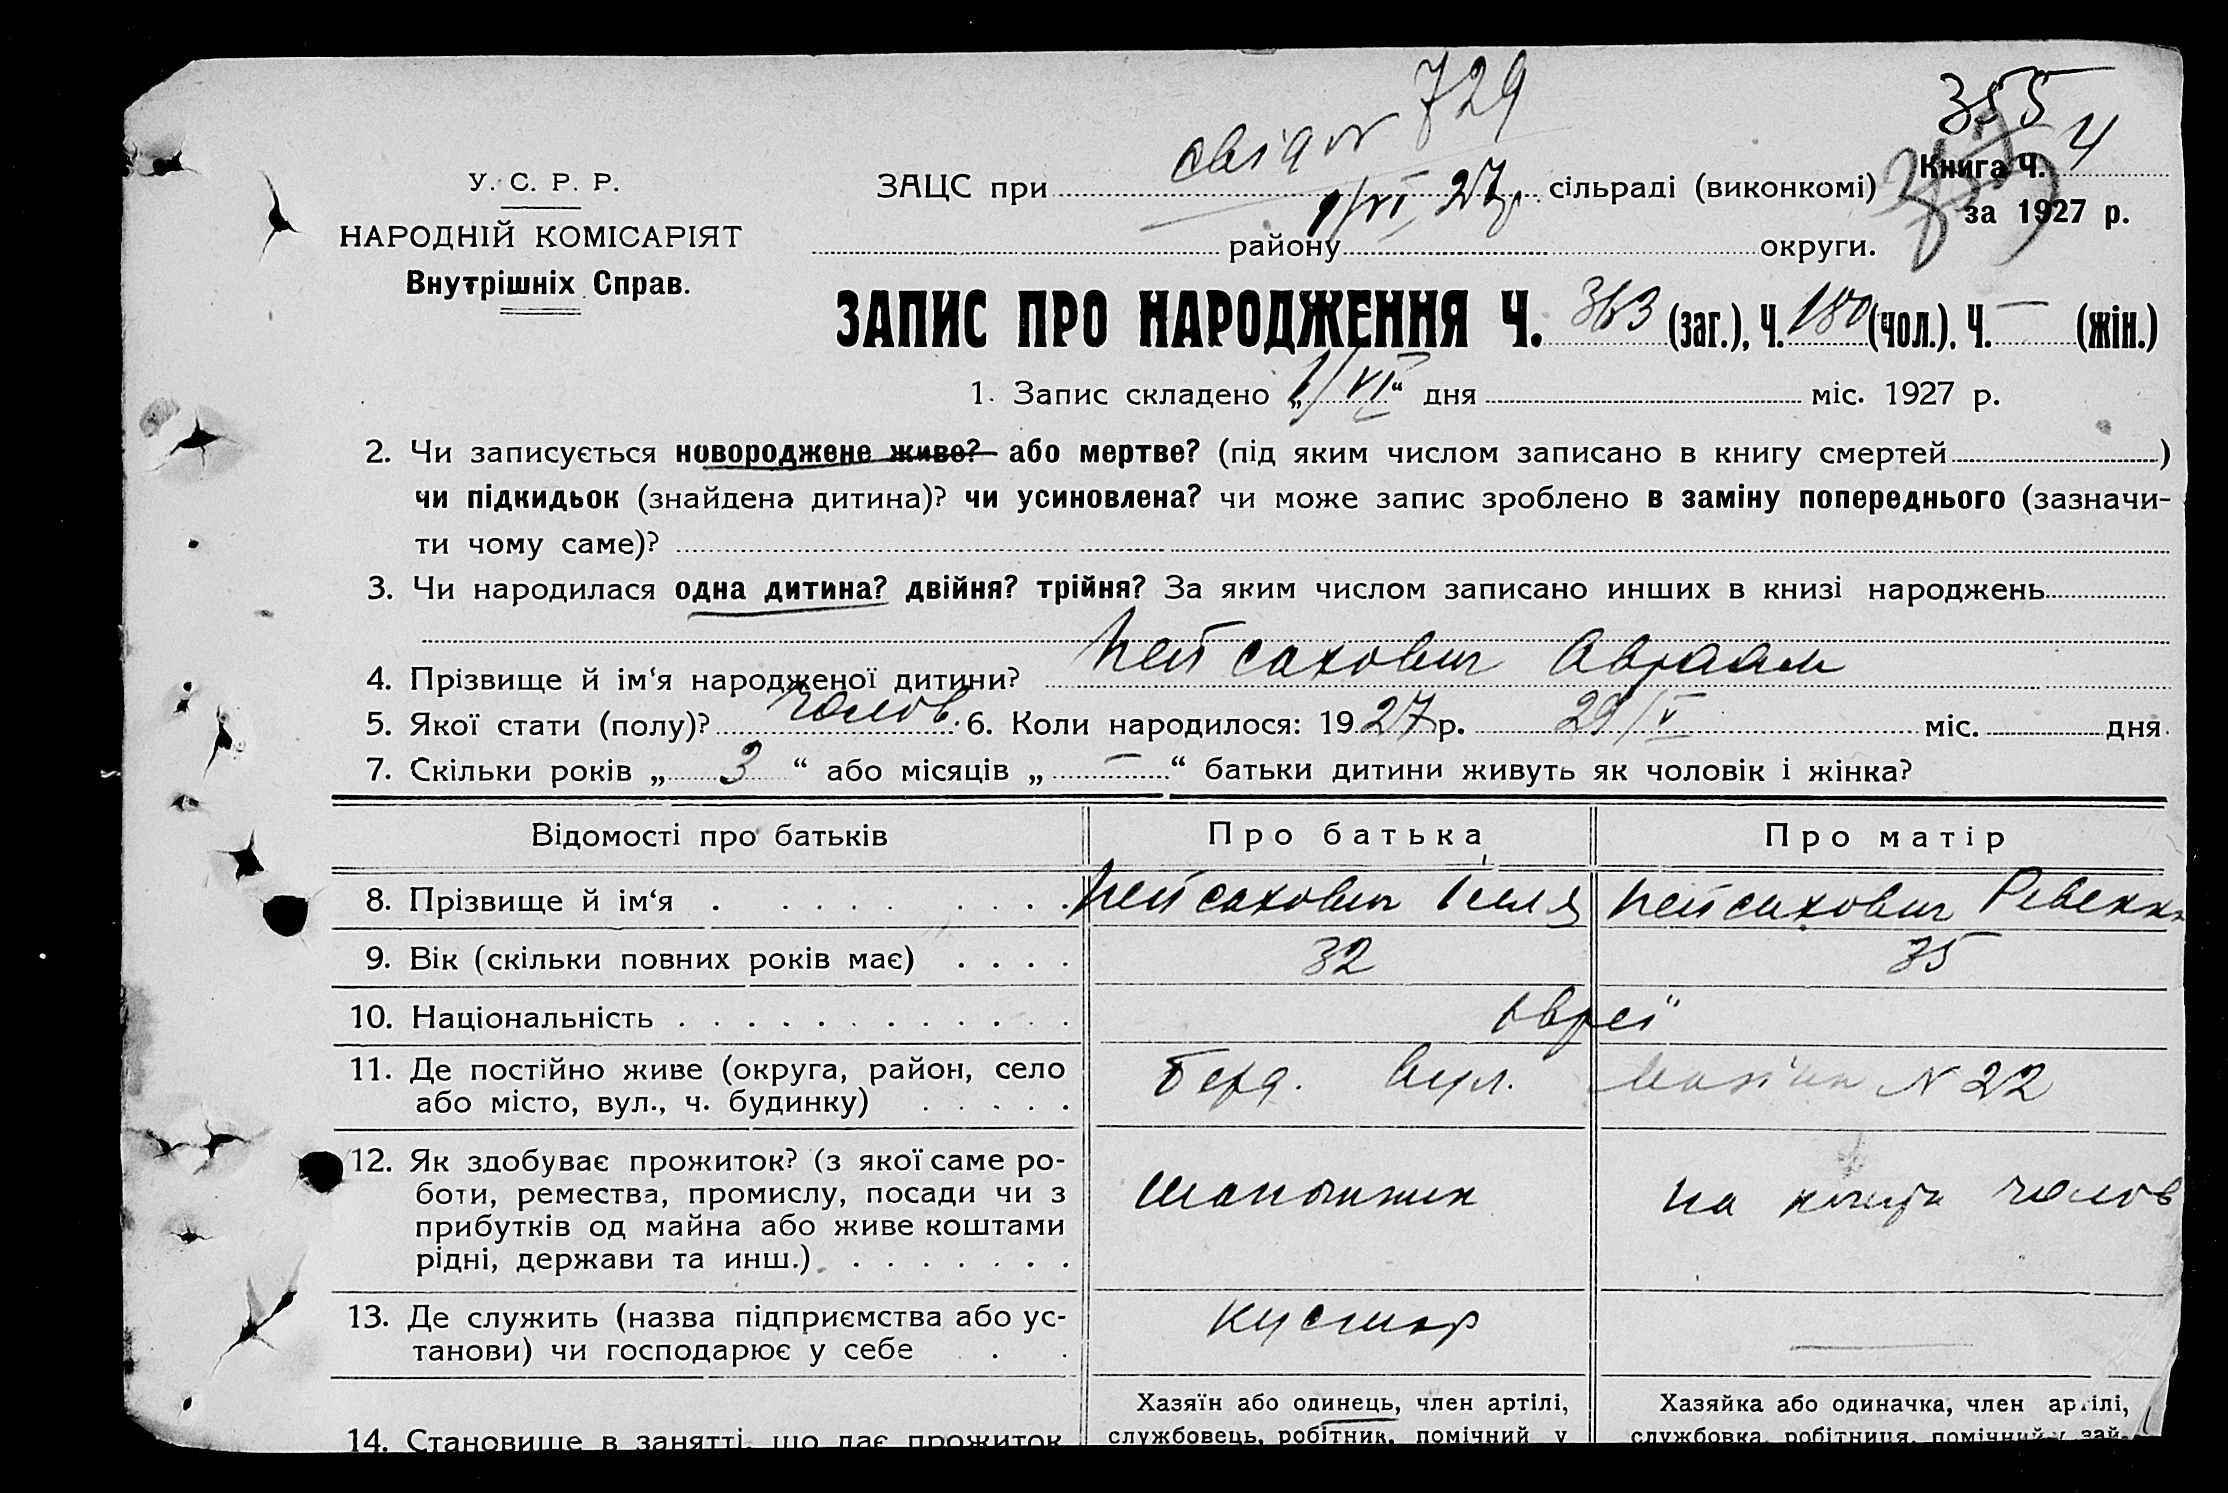 729
355
У. С. Р. Р.
НАРОДНІЙ КОМІСАРІЯТ
Внутрішніх Справ.
ЗАЦС при 1/VI 27 р. сільраді (виконкомі)
Книга Ч. 4
за 1927 р.
району округи.
ЗАПИС ПРО НАРОДЖЕННЯ Ч. 363 (заг.), Ч. 180 (чол.), Ч. — (жін.)
1. Запис складено „1/VI“ дня міс. 1927 р.
2. Чи записується новороджене живе? або мертве? (під яким числом записано в книгу смертей )
чи підкидьок (знайдена дитина)? чи усиновлена? чи може запис зроблено в заміну попереднього (зазначи-
ти чому саме)?
3. Чи народилася одна дитина? двійня? трійня? За яким числом записано инших в книзі народжень
4. Прізвище й ім‘я народженої дитини? Пейсахович Авраам
5. Якої стати (полу)? чолов. 6. Коли народилося: 1927 р. 29/V міс. дня
7. Скільки років „ 3 “ або місяців „ — “ батьки дитини живуть як чоловік і жінка?
Відомості про батьків Про батька Про матір
8. Прізвище й ім‘я Пейсахович Пейсахович Ревекка
9. Вік (скільки повних років має) 32 35
10. Національність євреї
11. Де постійно живе (округа, район, село
або місто, вул., ч. будинку) Берд. вул. N 22
12. Як здобуває прожиток? (з якої саме ро-
боти, ремества, промислу, посади чи з
прибутків од майна або живе коштами
рідні, держави та инш.) на чолов
13. Де служить (назва підприємства або ус-
танови) чи господарює у себе кустар —
14. Становище в занятті, що дає прожиток
Хазяїн або одинець, член артілі,
службовець, робітник, помічний у
Хазяйка або одиначка, член артілі,
службовка, робітниця, помічний у зай-